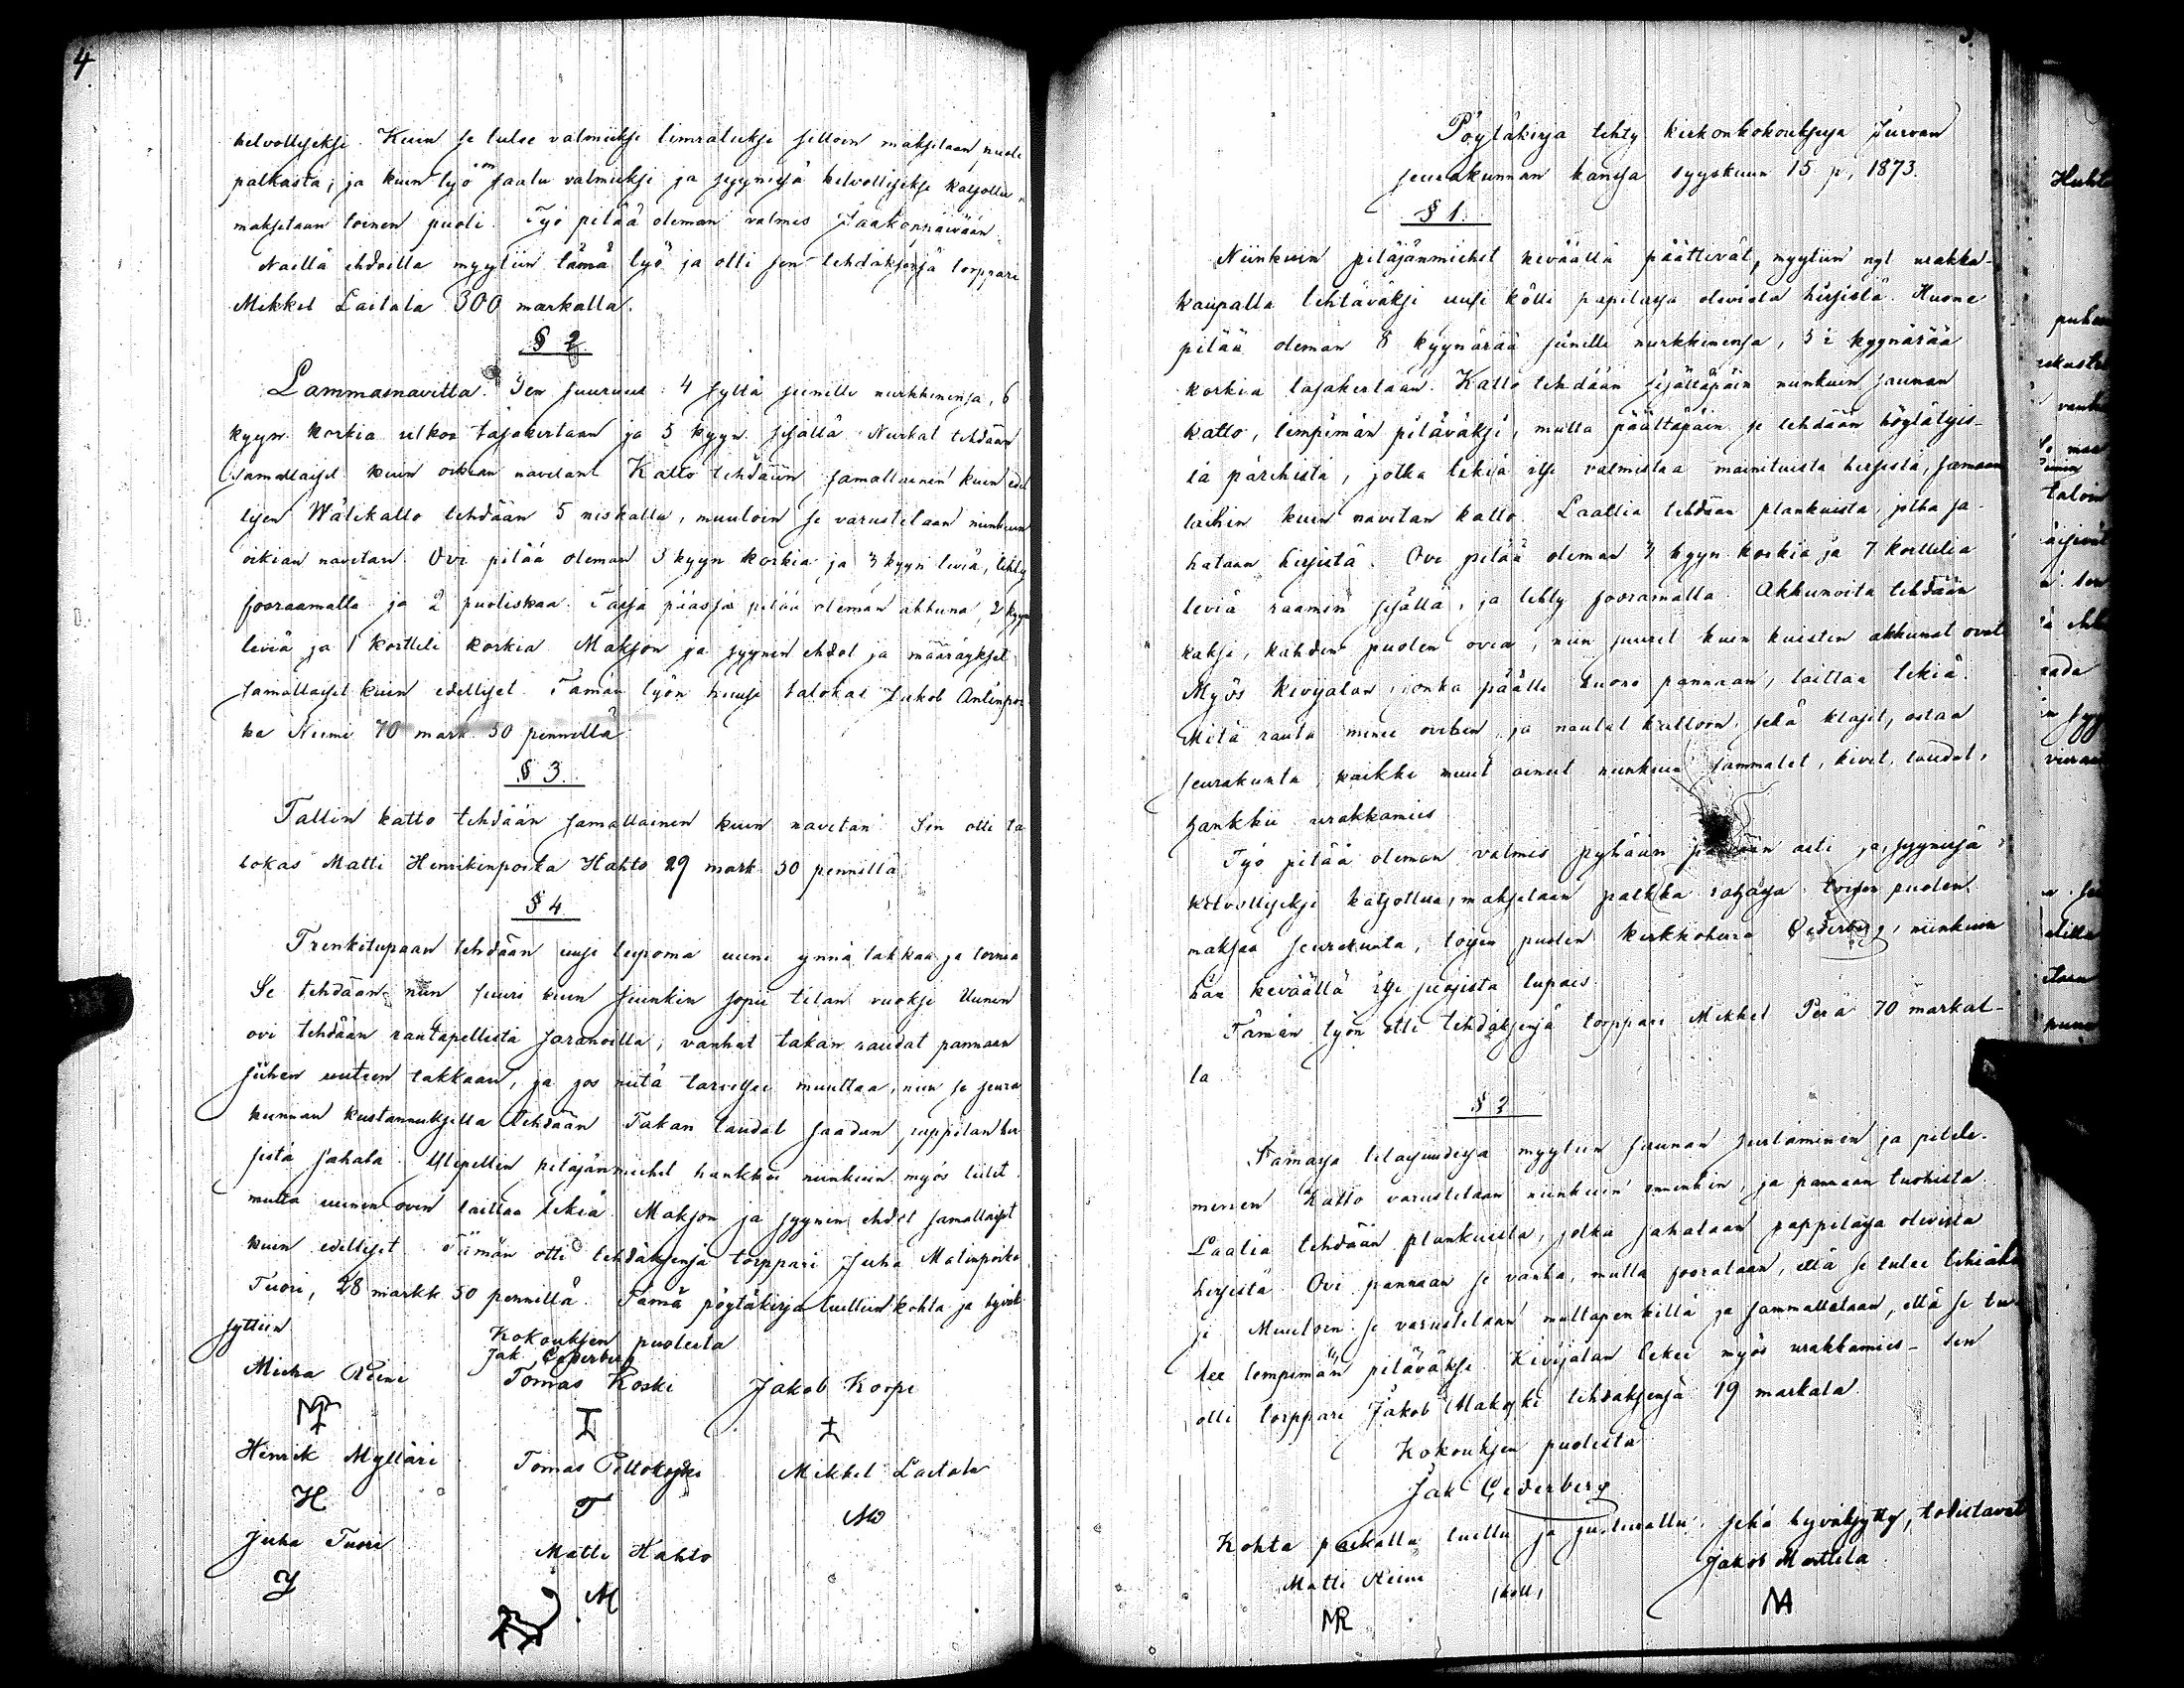 4
kelvolliseksi. Kuin se tulee valmiiksi limraliksi silloin maksetaan puoli
palkasta, ja kuin työ on saatu valmiiksi ja syynissä kelvolliseksi katsottu
maksetaan toinen puoli. Työ pitää oleman valmis Jaakonpäivään.
Näillä ehdoilla myytiin tämä työ ja otti sen tehdäksensä torppari
Mikkel Laitala 300 markalla.
§ 2.
Lammasnavetta. Sen suuruus 4 syltä sinelle nurkkinensa, 6
kyyn. korkia ulkoa tasakertaan ja 5 kyyn. sisällä. Nurkat tehdään
samallaiset kuin oikian navetant. Katto tehdään samallainen kuin edel
lisen. Wälikatto tehdään 5 niskalla, muutoin se varustetaan niinkuin
oikian navetan. Ovi pitää oleman 3 kyyn korkia ja 3 kyyn leviä, tehty
fooraamalla ja 2 puoliskaa. Tassa päässä pitää oleman akkuna, 2 kyyn
leviä ja 1 kortteli korkia. Makson ja syynin ehdot ja määräykset
samallaiset kuin edelliset. Tämän työn huusi talokas Jakob Antinpoi
ka Niemi 70 mark 50 pennillä.
§ 3.
Tallin katto tehdään samallainen kuin navetan. Sen otti ta
lokas Matti Henrikinpoika Hahto 29 mark 50 pennillä.
§ 4.
Trenkitupaan tehdään uusi leipoma uuni ynnä takkaa ja tornia
Se tehdään niin suuri kuin siinkin sopii tilan vuoksi. Uunin
ovi tehdään rautapellistä saranoilla, vanhat takan raudat pannaan
siihen uuteen takkaan, ja jos niitä tarvitsee muuttaa, niin se seura
kunnan kustannuksella tehdään. Takan laudat saadan pappilan hir
sistä sahata. Ylepellin pitäjänmiehet hankkii niinkuin myös tiilet.
mutta uunin oven laittaa tekiä. Makson ja syynin ehdot samallaiset
kuin edelliset. Tämän otti tehdäksensä torppari Juha Matinpoika
Tuori, 28 markk 50 pennillä. Tämä pöytäkirja luettiin kohta ja hyväk
syttiin.
Kokouksen puolesta
Jak. Cederberg
Micka Reini Tomas Koski Jakob Korpi
Henrik Mylläri Tomas Peltokoski Mikkel Laitala
H T
Juha Tuori Matti Hahto
J M
Pöytäkirja tehty kirkonkokouksessa Jurvan
seurakunnan kansa syyskuun 15 p, 1873.
§ 1.
Niinkuin pitäjänmiehet keväällä päättivät, myytiin nyt urakka-
kaupalla tehtäväksi uusi kölli papilassa olevista hirsistä. Huone
pitää oleman 8 kyynärää sinelle nurkkinensa, 5 ½ kyynärää
korkia tasakertaan. Katto tehdään sisältäpäin niinkuin saunan
katto, lempimän pitäväksi, mutta päältäpäin se tehdään höylätyis-
tä pärehistä, jotka tekiä itse valmistaa mainituista hirsistä, samaan
laihin kuin navetan katto. Laattia tehdään plankuista, jotka sa-
hataan hirsistä. Ovi pitää oleman 3 kyyn korkia ja 7 korttelia
leviä raamin sisällä, ja tehty fooramalla. Akkunoita tehdään
kaksi, kahden puolen ovea, niin suuret kuin kuistin akkunat ovat
Myös kivijalan, jonka päälle huone pannaan, laittaa tekiä.
Mitä rauta minee oviben, ja naulat kattoon, sekä klasit, ostaa
seurakunta, kaikki muut aineet niinkuin sammalet, kivet, laudat,
hankkii urakkamies.
Työ pitää oleman valmis pyhäin päivään asti ja, syynissä
kelvolliseksi katsottua, maksetaan palkka rahassa toisen puolen
maksaa seurakunta, toisen puolen kirkkoherra Cederberg, niinkuin
hän keväällä itse suosista lupais.
Tämän työn otti tehdäksensä torppari Mikkel Perä 70 markal-
la.
§ 2
Samassa tilaisuudessa myytiin saunan siirtäminen ja pitele-
minen. Katto varustetaan niinkuin ennenkin, ja pannaan tuohista.
Laatia tehdään plankuista, jotka sahataan pappilassa olevista
hirsistä. Ovi pannaan se vanha, mutta foorataan, että se tulee tihiäk
si. Muutoin se varustetaan multapenkillä ja sammalletaan, että se tu-
lee lempimän pitäväksi. Kivijalan tekee myös urakkamies. Sen
otti torppari Jakob Makoski tehdäksensä 19 markala.
Kokouksen puolesta
Jak Cederberg
Kohta paikalla luettu ja justeerattu, sekä hyväksytty, todistavat
Matti Reini Jakob Marttila
MR MA